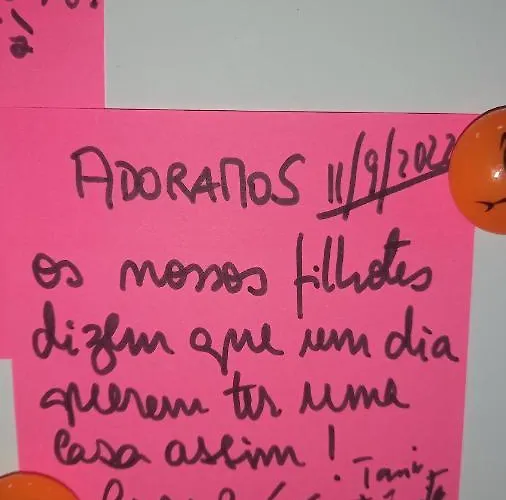 ADORAMOS 11/9/2022
os nossos filhotes
dizem que um dia
querem ter uma
casa assim!